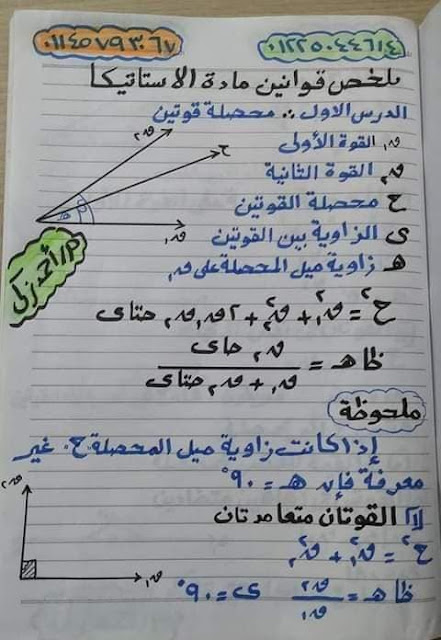 ٠١٢٢٥٠٤٤٦١٤
٠١١٤٥٧٩٣٠٦٧
ملخص قوانين مادة الاستاتيكا
الدرس الاول :. محصلة قوتين
ق₁ القوة الأولى
ق₂ القوة الثانية
ح محصلة القوتين
ى الزاوية بين القوتين
هـ زاوية ميل المحصلة على ق₁
ق₂
ح
ى
هـ
ق₁
م/أحمد زكى
ح² = ق₁² + ق₂² + ٢ق₁ق₂ حتاى
ظا هـ = ق₂ حاى / ق₁ + ق₂ حتاى
ملحوظة
إذا كانت زاوية ميل المحصلة "ح" غير
معرفة فإن هـ = ٩٠°
١ القوتان متعامدتان
ح² = ق₁² + ق₂²
ظا هـ = ق₂ / ق₁ ى = ٩٠°
ق₂
ق₁